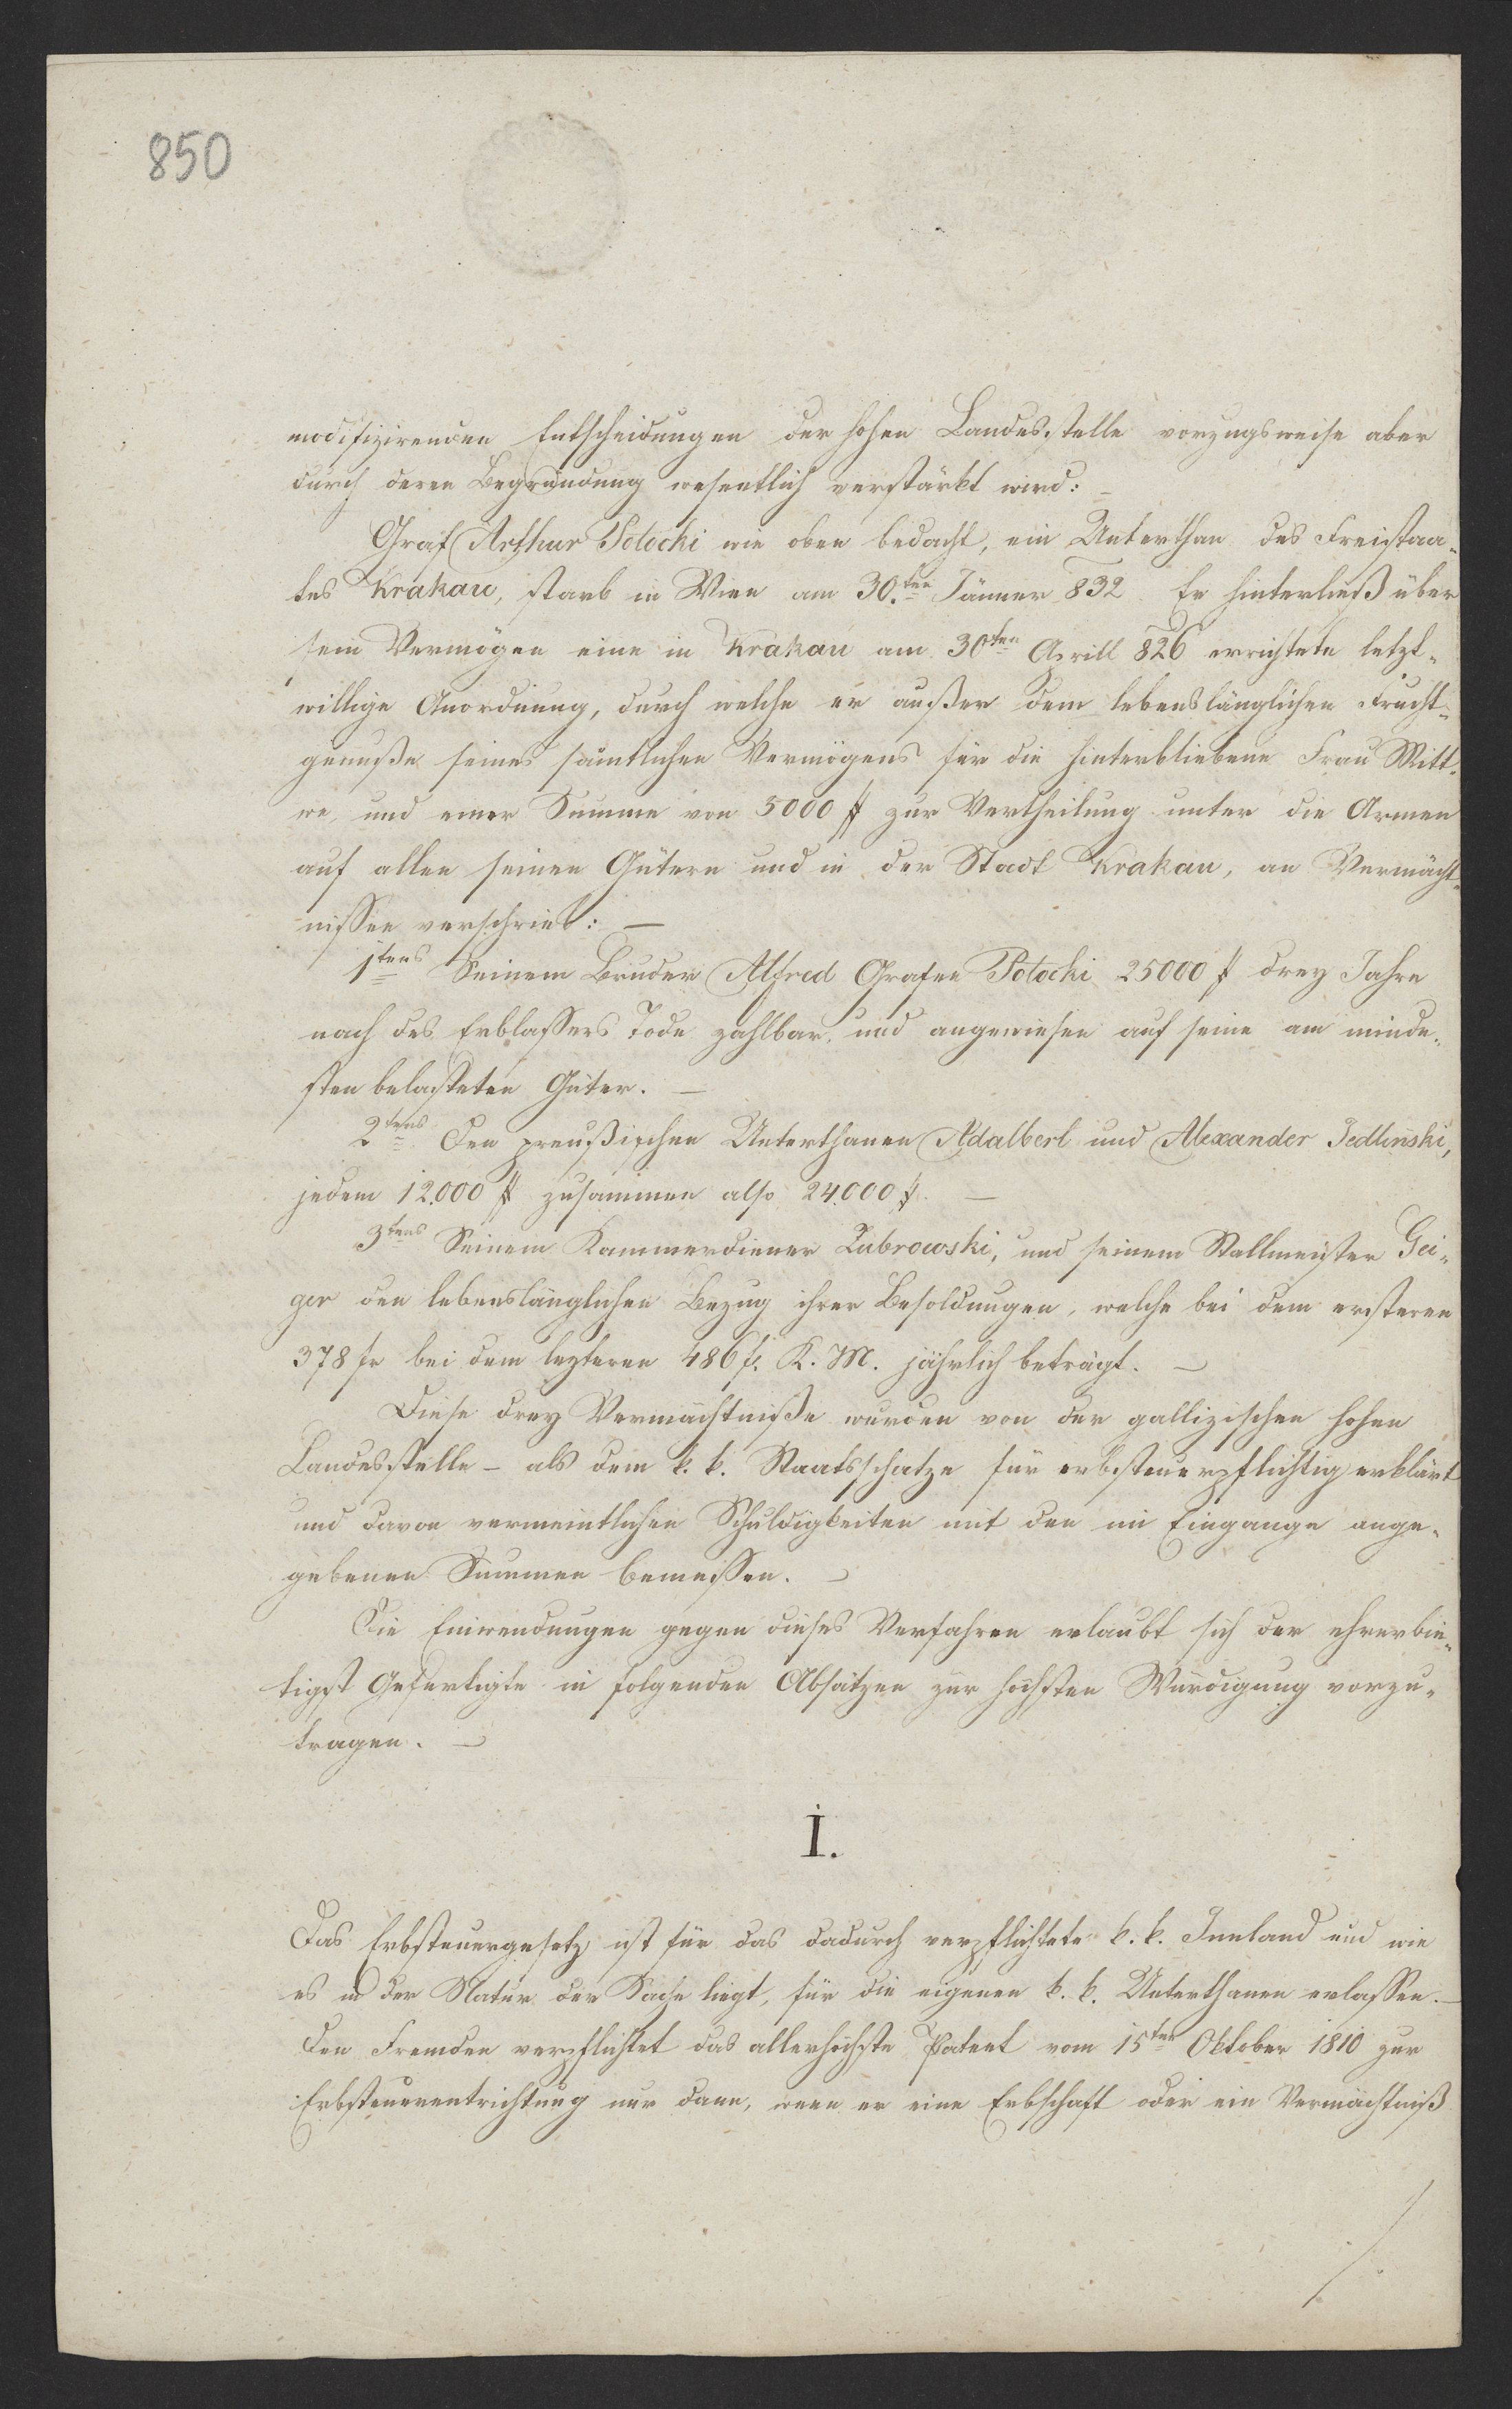 850
modifizirenden Entscheidungen der hohen Landesstelle vorzugsweise aber
durch deren Begründung wesentlich verstärkt wird: –
Graf Arthur Potocki wie oben bedacht, ein Unterthan des Freistaa-
tes Krakau, starb in Wien am 30.ten Jänner 832 Er hinterließ über
sein Vermögen eine in Krakau am 30ten Aprill 826 errichtete letzt-
willige Anordnung, durch welche er außer dem lebenslänglichen Frucht-
genuße seines sämtlichen Vermögens für die hinterbliebene Frau Witt-
we, und einer Summe von 5000 # zur Vertheilung unter die Armen
auf allen seinen Gütern und in der Stadt Krakau, an Vermächt-
nissen verschrieb: –
1tens Seinem Bruder Alfred Grafen Potocki 25000 # drey Jahre
nach des Erblassers Tode zahlbar, und angewiesen auf seine am minde-
sten belasteten Güter. –
2tens Den preußischen Unterthanen Adalbert und Alexander Jedliński,
jedem 12.000 # zusammen also 24.000 #. –
3tens Seinem Kammerdiener Zubrowski, und seinem Stallmeister Gei-
ger den lebenslänglichen Bezug ihrer Besoldungen, welche bei dem ersteren
378 fr bei dem lezteren 486 fr. K. M. jährlich beträgt. –
Diese drey Vermächtniße wurden von der gallizischen hohen
Landesstelle – als dem k. k. Staatsschatze für erbsteuerpflichtig erklärt
und davon vermeintlichen Schuldigkeiten mit den im Eingange ange-
gebenen Summen bemessen. –
Die Einwendungen gegen dieses Verfahren erlaubt sich der ehrerbie-
tigst Gefertigte in folgenden Absätzen zur höchsten Würdigung vorzu-
tragen. –
I.
Das Erbsteuergesetz ist für das dadurch verpflichtete k. k. Innland und wie
es in der Natur der Sache liegt, für die eigenen k. k. Unterthanen erlassen. –
Den Fremden verpflichtet das allerhöchste Patent vom 15ten Oktober 1810 zur
Erbsteuerentrichtung nur dann, wenn er eine Erbschaft oder ein Vermächtniß